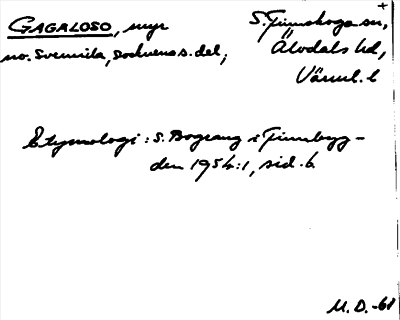 GAGALOSO, myr
S. Finnskoga sn,
no. Svennila, socknens s. del;
Älvdals hd,
Värml. l
Etymologi: S. Bograng i Finnbyg-
den 1954:1, sid. 6.
M.D. -61